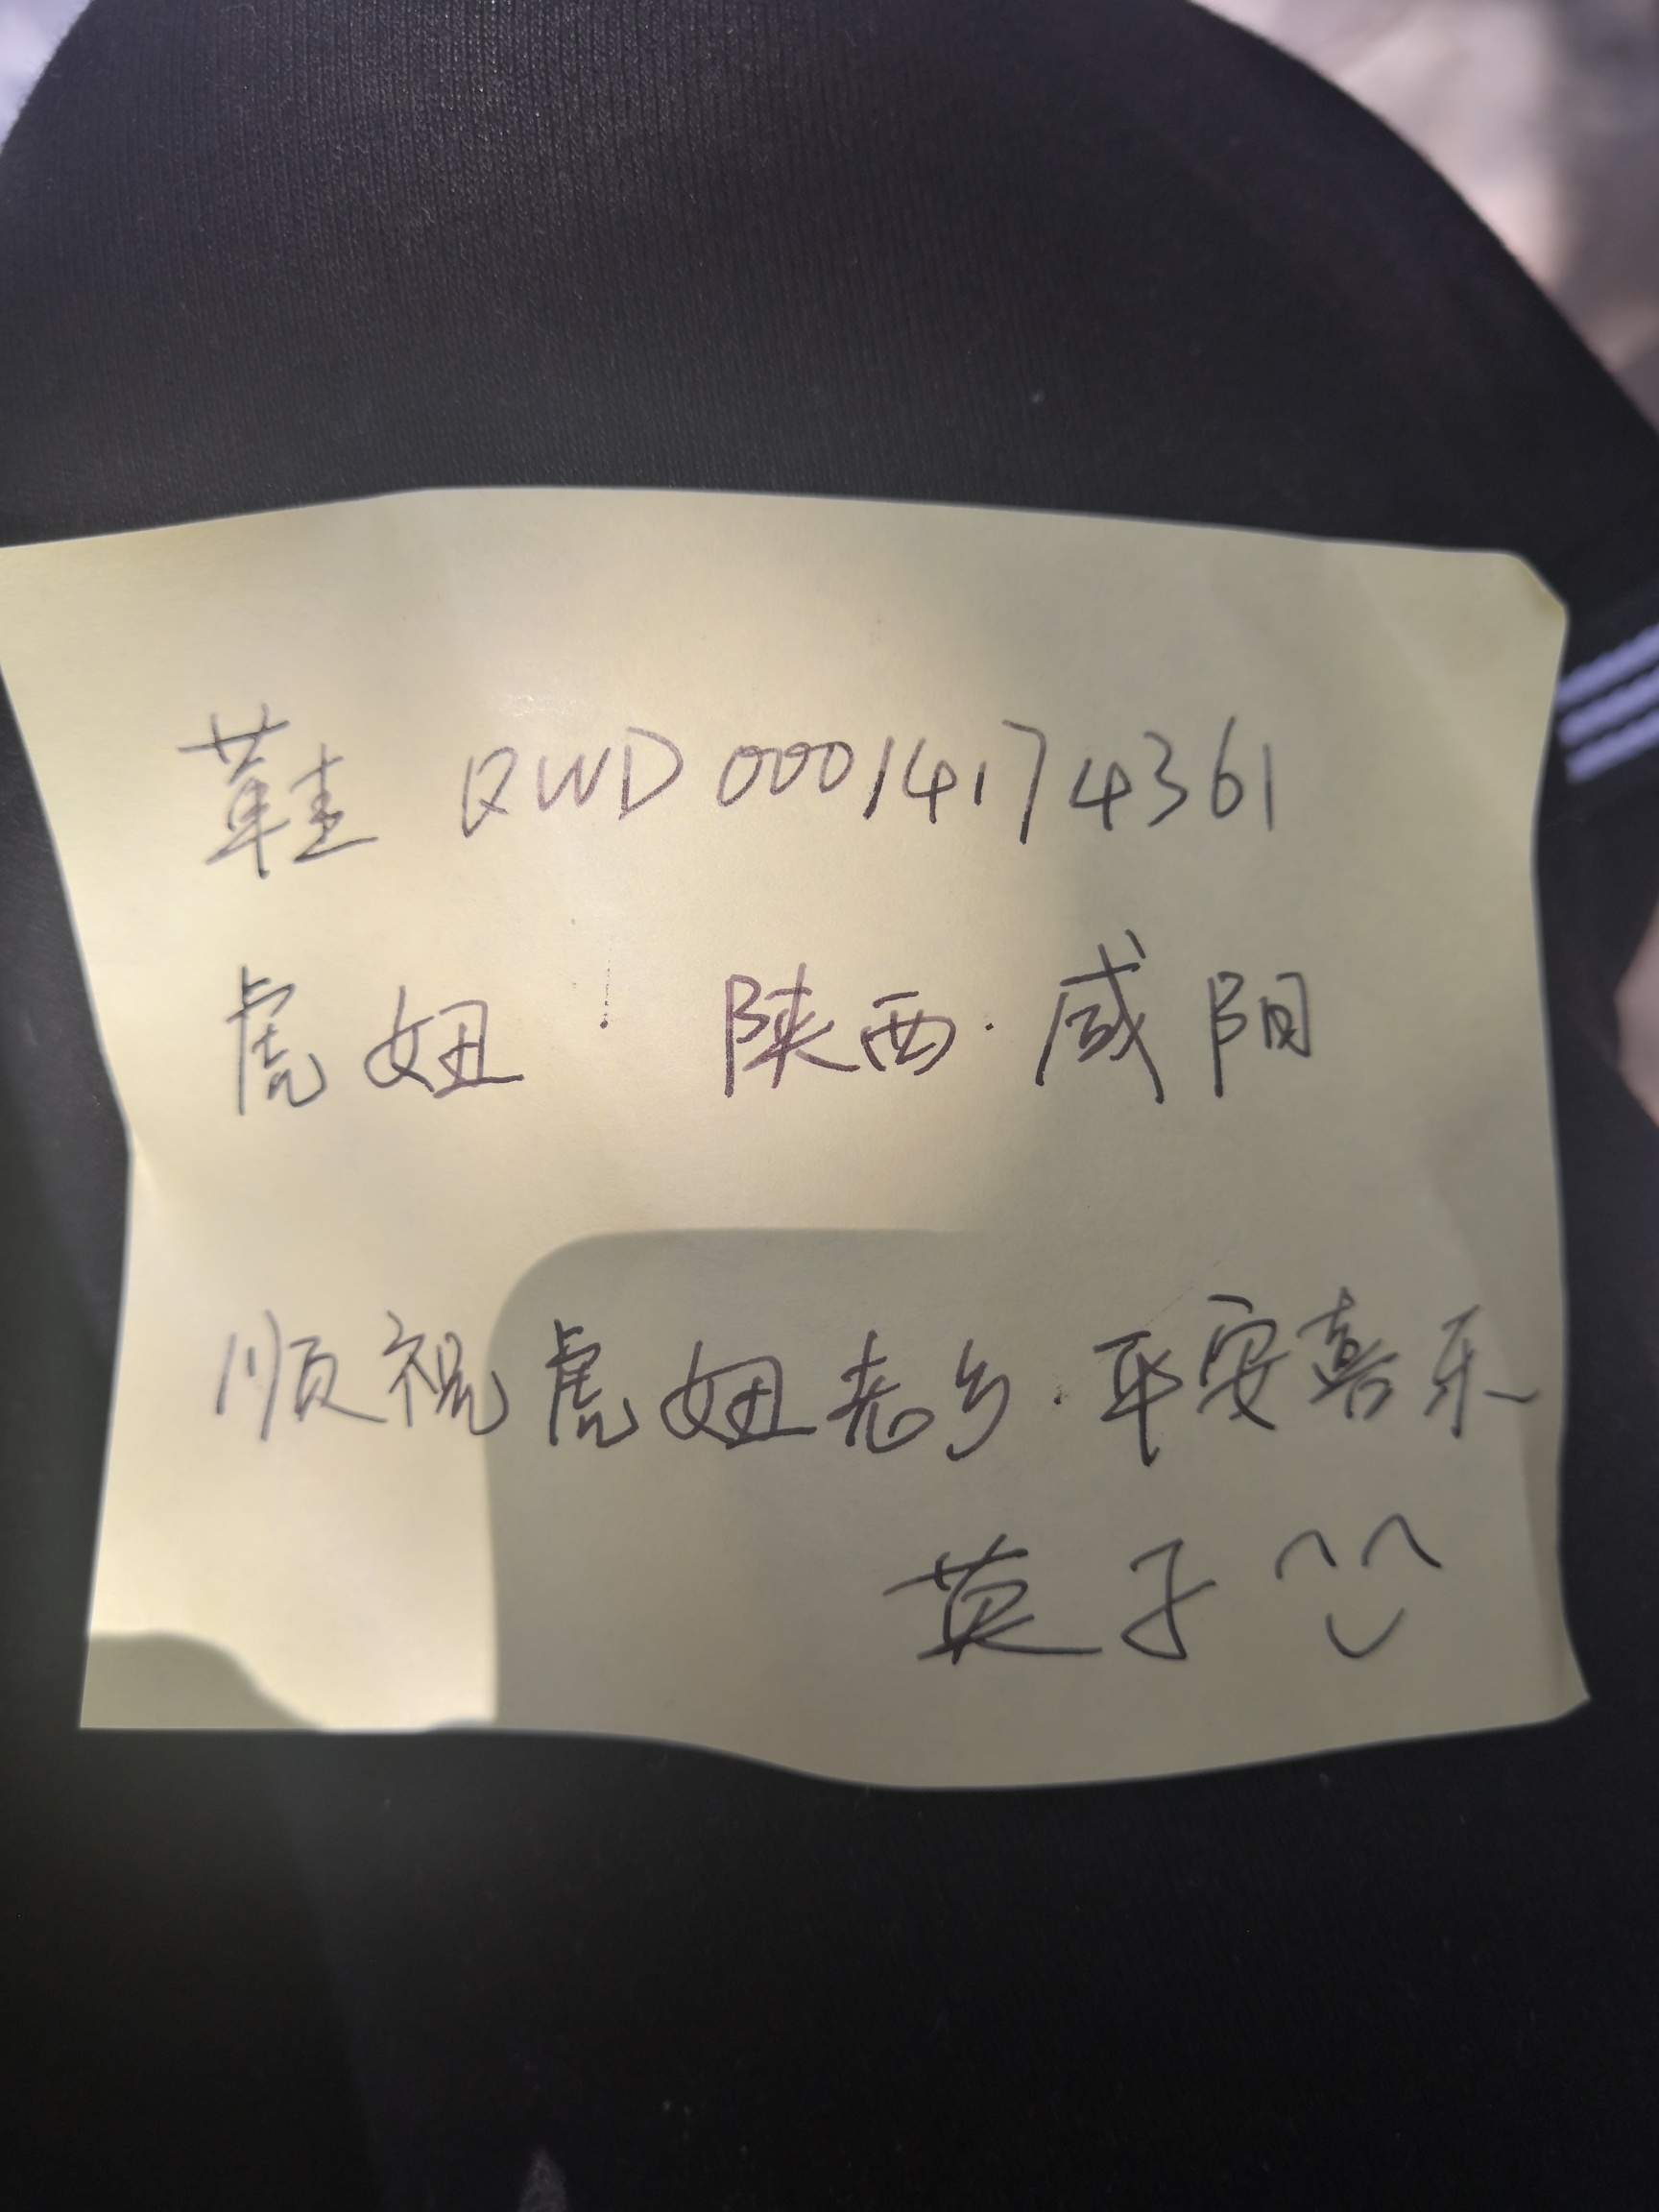 鞋 RWD00014174361
虎妞 陕西·咸阳
顺祝虎妞老乡·平安喜乐
英子